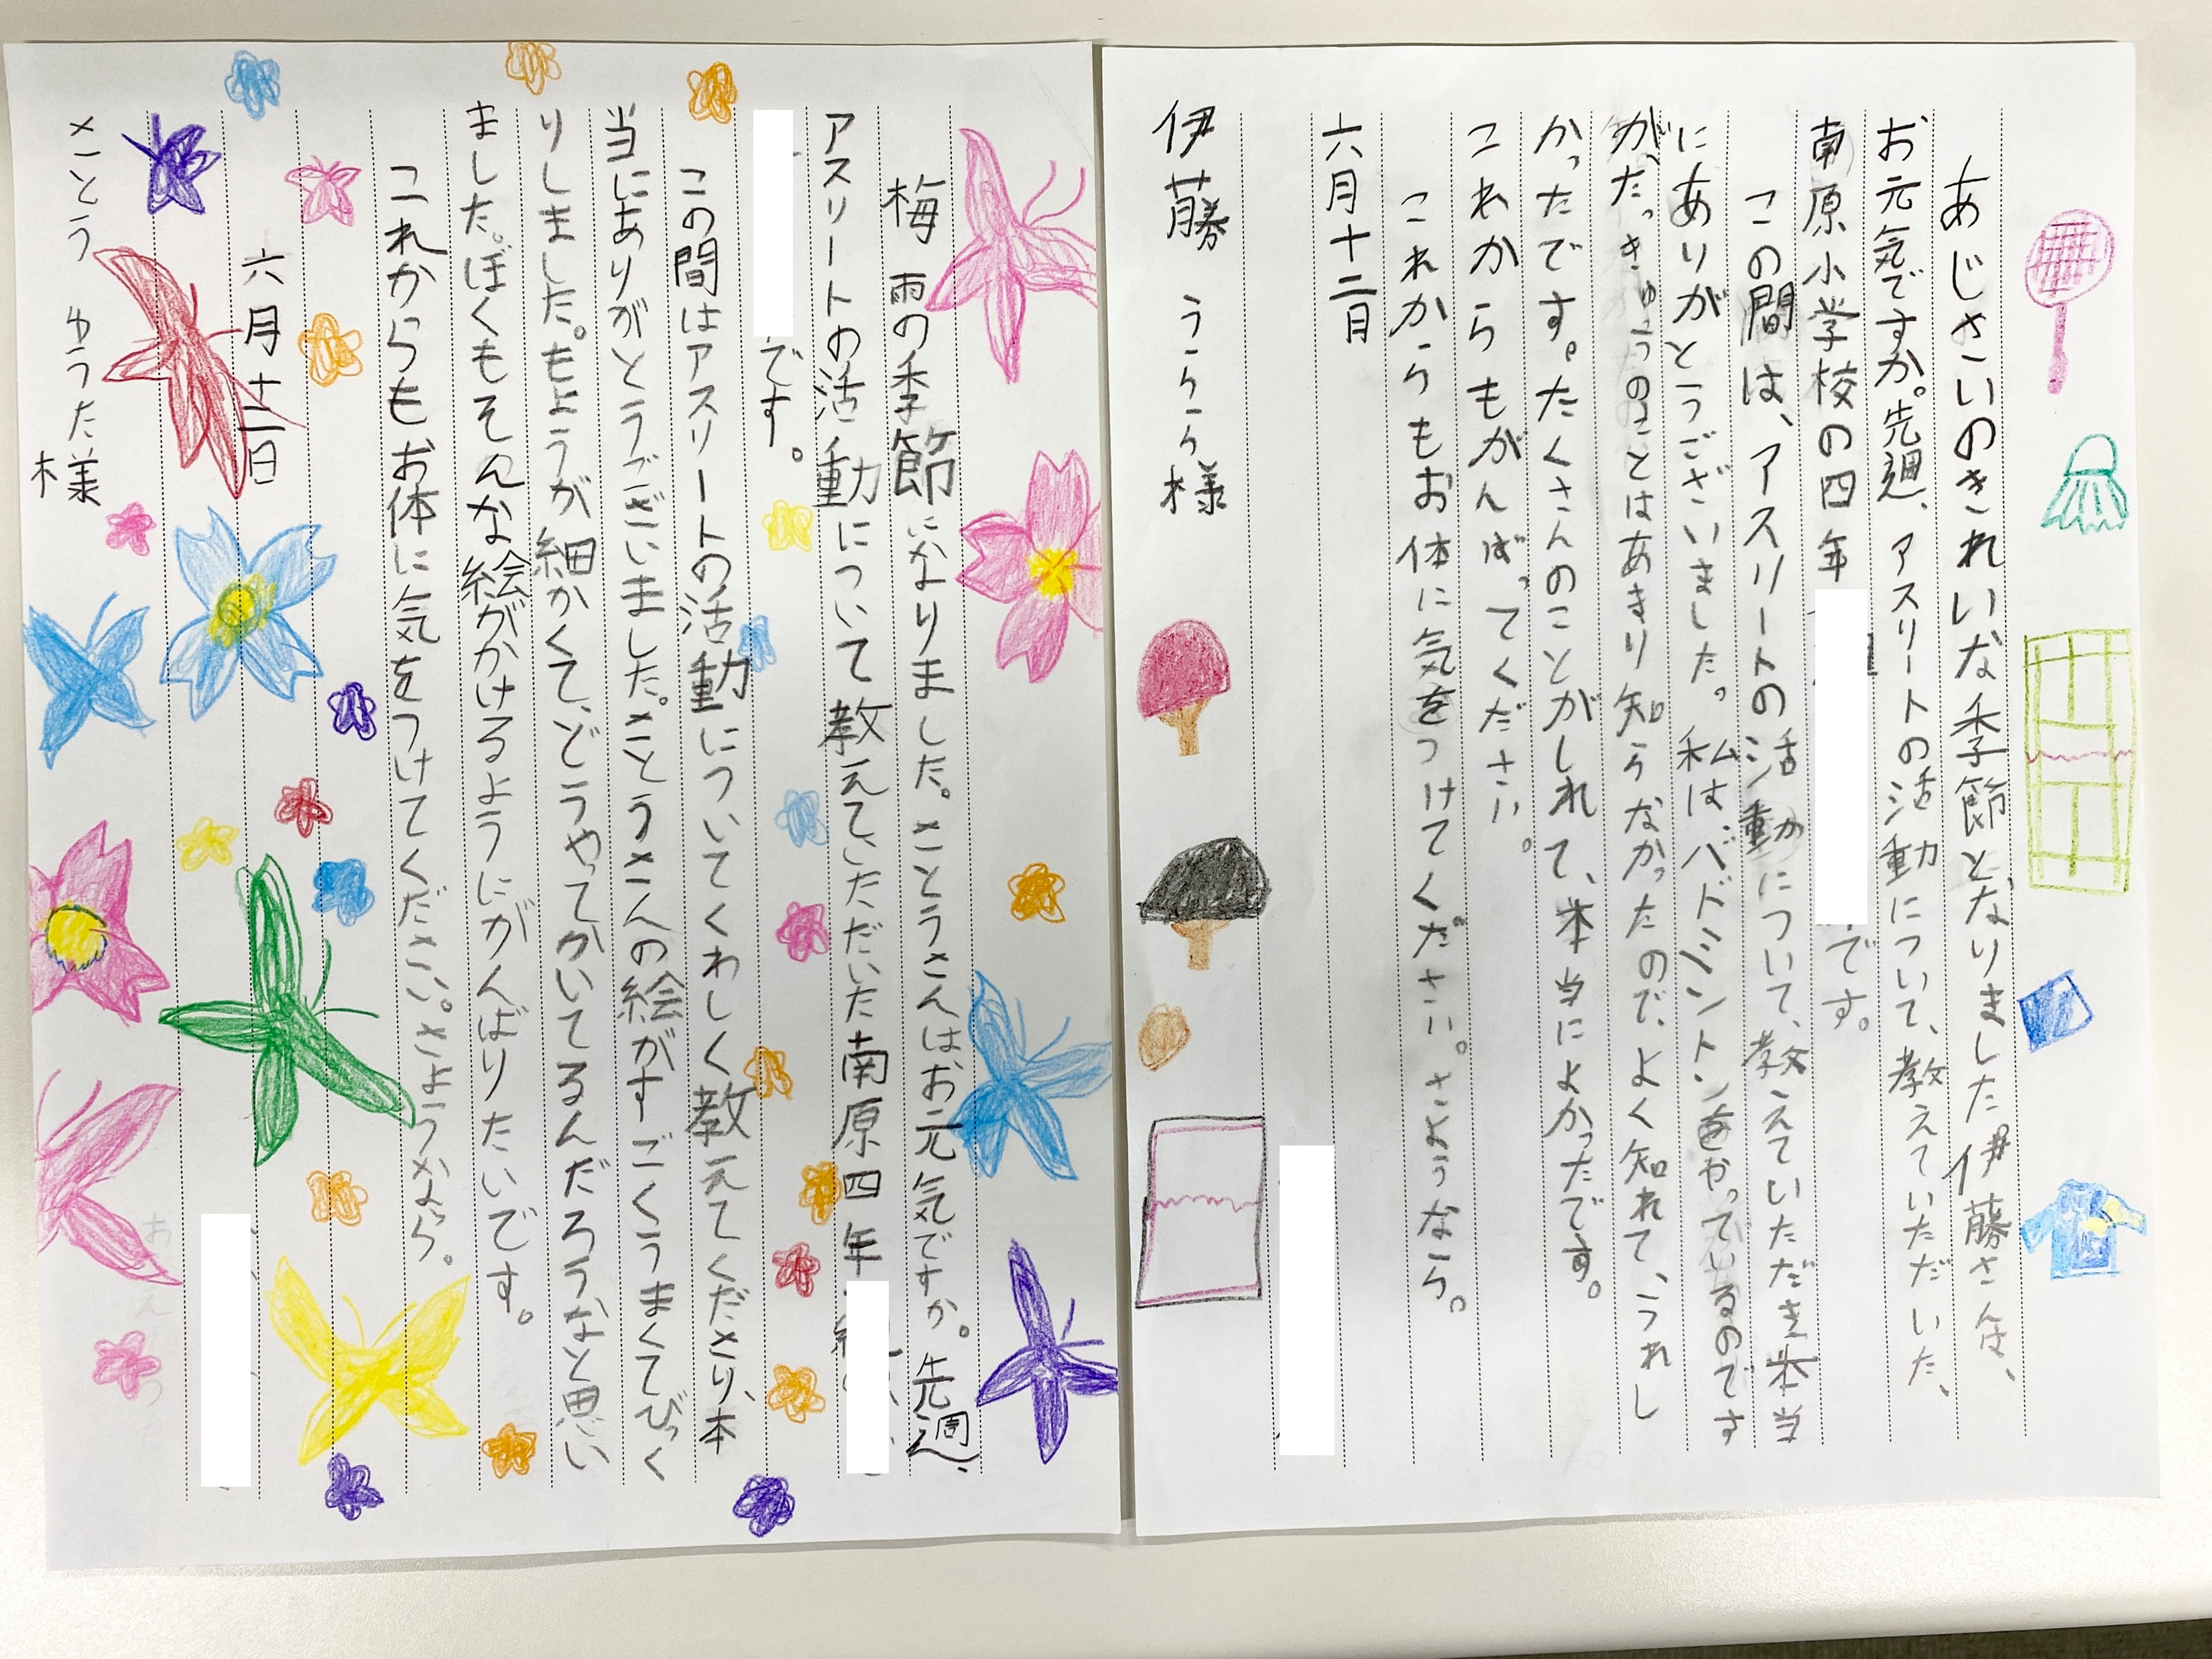 あじさいのきれいな季節となりました伊藤さんは、
お元気ですか。先週、アスリートの活動について、教えていただいた、
南原小学校の四年
です。
この間は、アスリートの活動について、教えていただき本当
にありがとうございました。私は、バドミントンをやっているのです
が、たっきゅうのことはあまり知らなかったので、よく知れて、うれし
かったです。たくさんのことがしれて、本当によかったです。
これからもがんばってください。
これからもお体に気をつけてください。さようなら。
六月十二日
伊藤 うらら様
梅雨の季節になりました。さとうさんはお元気ですか。先週、
アスリートの活動について教えていただいた南原四年
です。
この間はアスリートの活動についてくわしく教えてくださり、本
当にありがとうございました。さとうさんの絵がすごくうまくてびっく
りしました。もようが細かくて、どうやってかいてるんだろうなと思い
ました。ぼくもそんな絵がかけるようにがんばりたいです。
これからもお体に気をつけてください。さようなら。
六月十二日
さとう ゆうた様